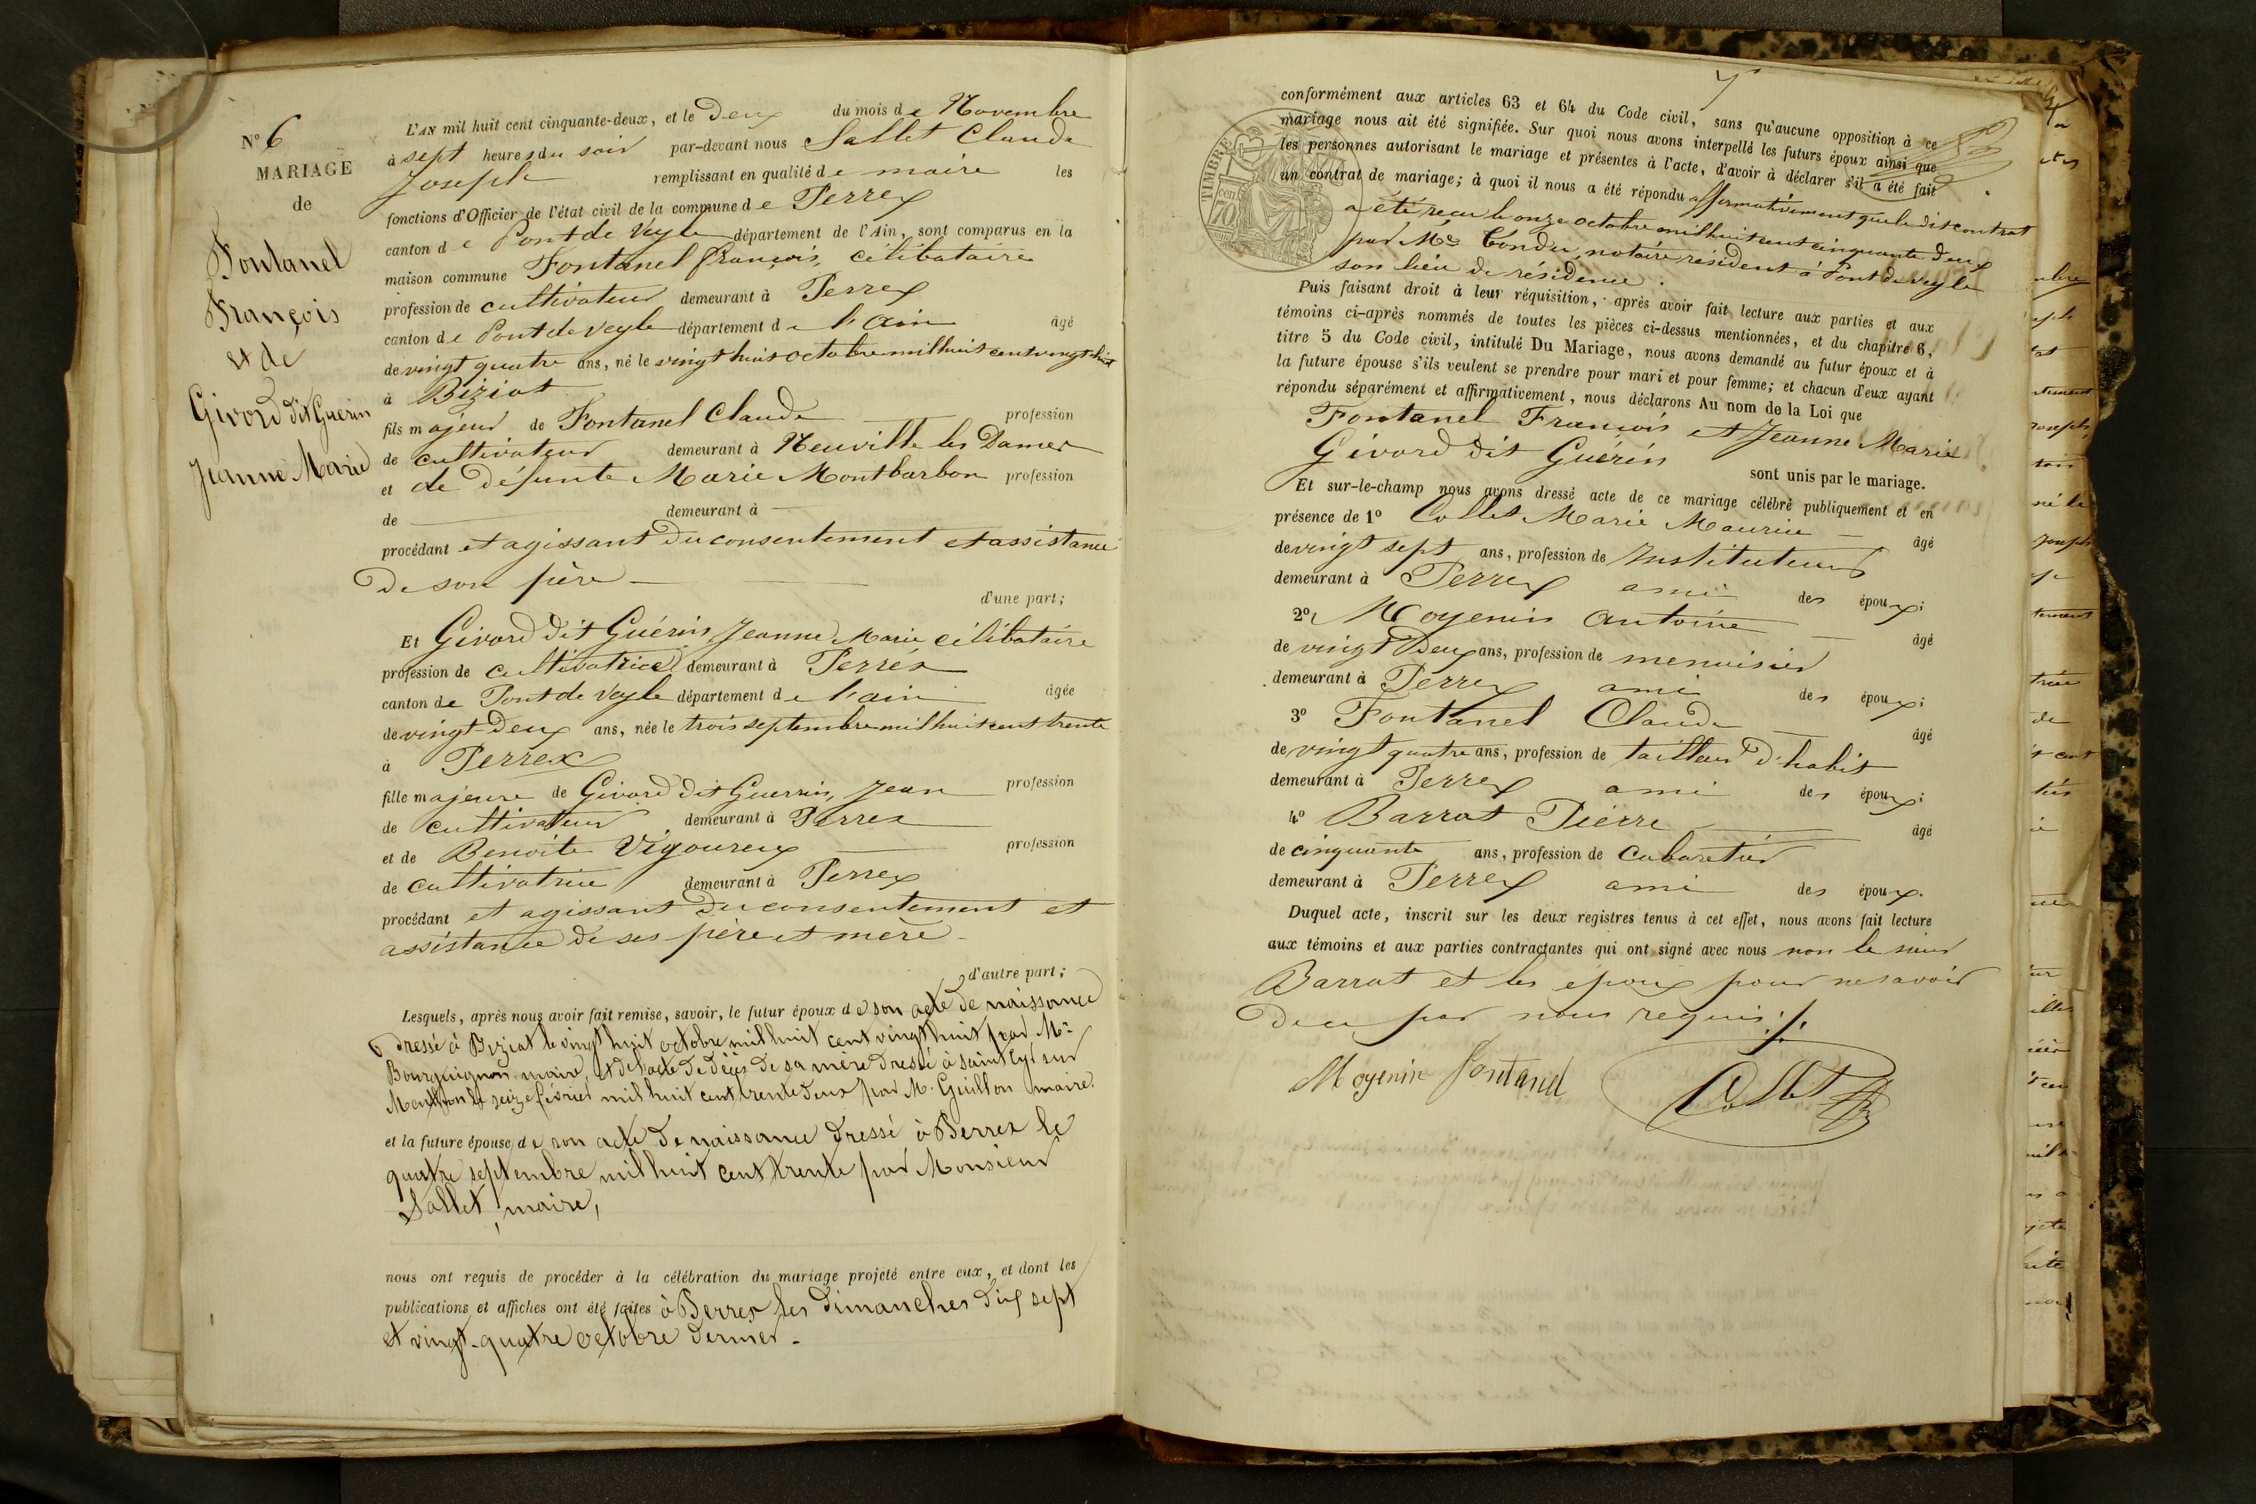 N° 6
MARIAGE
de
Fontanel
François
et de
Givord dit Guerin
Jeanne Marie
L'AN mil huit cent cinquante-deux, et le Deux du mois de Novembre
à sept heures du soir par-devant nous Sallet Claude
Joseph remplissant en qualité de maire les
fonctions d'Officier de l'état civil de la commune de Perrex
canton de Pont de Veyle département de l'Ain, sont comparus en la
maison commune Fontanel françois, célibataire
profession de cultivateur demeurant à Perrex
canton de Pont de Veyle département de l'ain âgé
de vingt quatre ans, né le vingt huit octobre mil huit cent vingt huit
à Biziat
fils majeur de Fontanel Claude profession
de cultivateur demeurant à Neuville les Dames
et de défunte Marie Montbarbon profession
de demeurant à
procédant et agissant du consentement et assistance
de son père
d'une part;
Et Givord dit Guérin Jeanne Marie célibataire
profession de cultivatrice demeurant à Perrex
canton de Pont de Veyle département de l'ain âgée
de vingt-deux ans, née le trois septembre mil huit cent trente
à Perrex
fille majeure de Givord dit Guerrin, Jean profession
de cultivateur demeurant à Perrex
et de Benoite Vigoureux profession
de cultivatrice demeurant à Perrex
procédant et agissant du consentement et
assistance de ses père et mère
d'autre part;
Lesquels, après nous avoir fait remise, savoir, le futur époux de son acte de naissance
dressé à Biziat le vingt huit octobre mil huit cent vingt huit par Mr
Bourguignon maire, et de l'acte de décès de sa mère dressé à saint Cyr sur
Menthon le seize février mil huit cent trente deux par M. Guillon maire.
et la future épouse de son acte de naissance dressé à Perrex le
quatre septembre mil huit cent trente par Monsieur
Sallet, maire,
nous ont requis de procéder à la célébration du mariage projeté entre eux, et dont les
publications et affiches ont été faites à Perrex les dimanches dix sept
et vingt-quatre octobre dernier.
TIMBRE
70
conformément aux articles 63 et 64 du Code civil, sans qu'aucune opposition à ce
mariage nous ait été signifiée. Sur quoi nous avons interpellé les futurs époux ainsi que
les personnes autorisant le mariage et présentes à l'acte, d'avoir à déclarer s'il a été fait
un contrat de mariage; à quoi il nous a été répondu affirmativement que le dit contrat
a été reçu le onze octobre mil huit cent cinquante deux
par Me Tondu, notaire résident à Pont de Veyle
son lieu de résidence.
Puis faisant droit à leur réquisition, après avoir fait lecture aux parties et aux
témoins ci-après nommés de toutes les pièces ci-dessus mentionnées, et du chapitre 6,
titre 5 du Code civil, intitulé Du Mariage, nous avons demandé au futur époux et à
la future épouse s'ils veulent se prendre pour mari et pour femme; et chacun d'eux ayant
répondu séparément et affirmativement, nous déclarons Au nom de la Loi que
Fontanel François et Jeanne Marie
Givord dit Guérin
sont unis par le mariage.
Et sur-le-champ nous avons dressé acte de ce mariage célébré publiquement et en
présence de 1° Collet Marie Maurice âgé
de vingt sept ans, profession de Instituteur
demeurant à Perrex ami des époux;
2° Moyenin Antoine âgé
de vingt deux ans, profession de menuisier
demeurant à Perrex ami des époux;
3° Fontanel Claude âgé
de vingt quatre ans, profession de tailleur d'habit
demeurant à Perrex ami des époux;
4° Barrat Pierre âgé
de cinquante ans, profession de Cabaretier
demeurant à Perrex ami des époux.
Duquel acte, inscrit sur les deux registres tenus à cet effet, nous avons fait lecture
aux témoins et aux parties contractantes qui ont signé avec nous non le sieur
Barrat et les epoux pour ne savoir
De ce par nous requis ./.
Moyenin Fontanel Collet